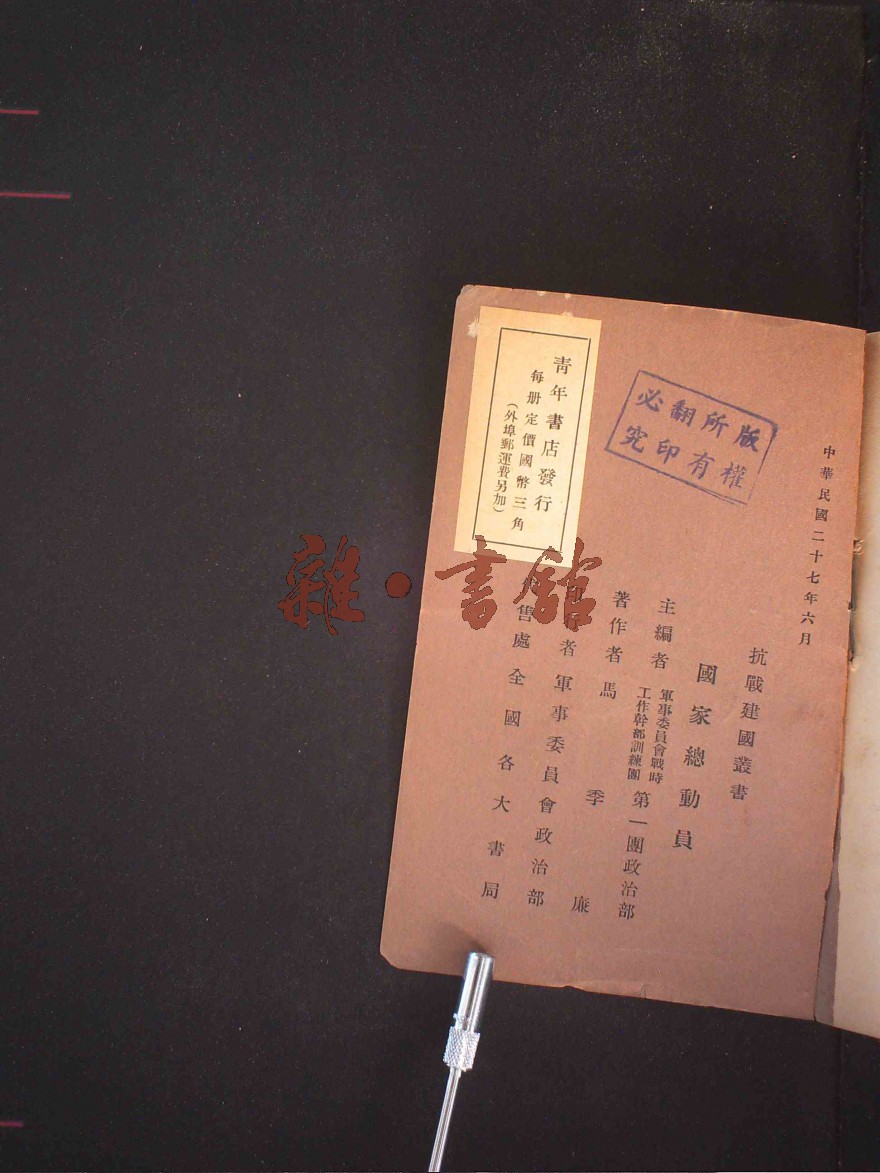 中華民國二十七年六月
版權所有
翻印必究
抗戰建國叢書
國家總動員
主編者 軍事委員會戰時工作幹部訓練團 第一團政治部
著作者 馬季廉
者 軍事委員會政治部
售處 全國各大書局
青年書店發行
每册定價國幣三角
(外埠郵運費另加)
雜·書館